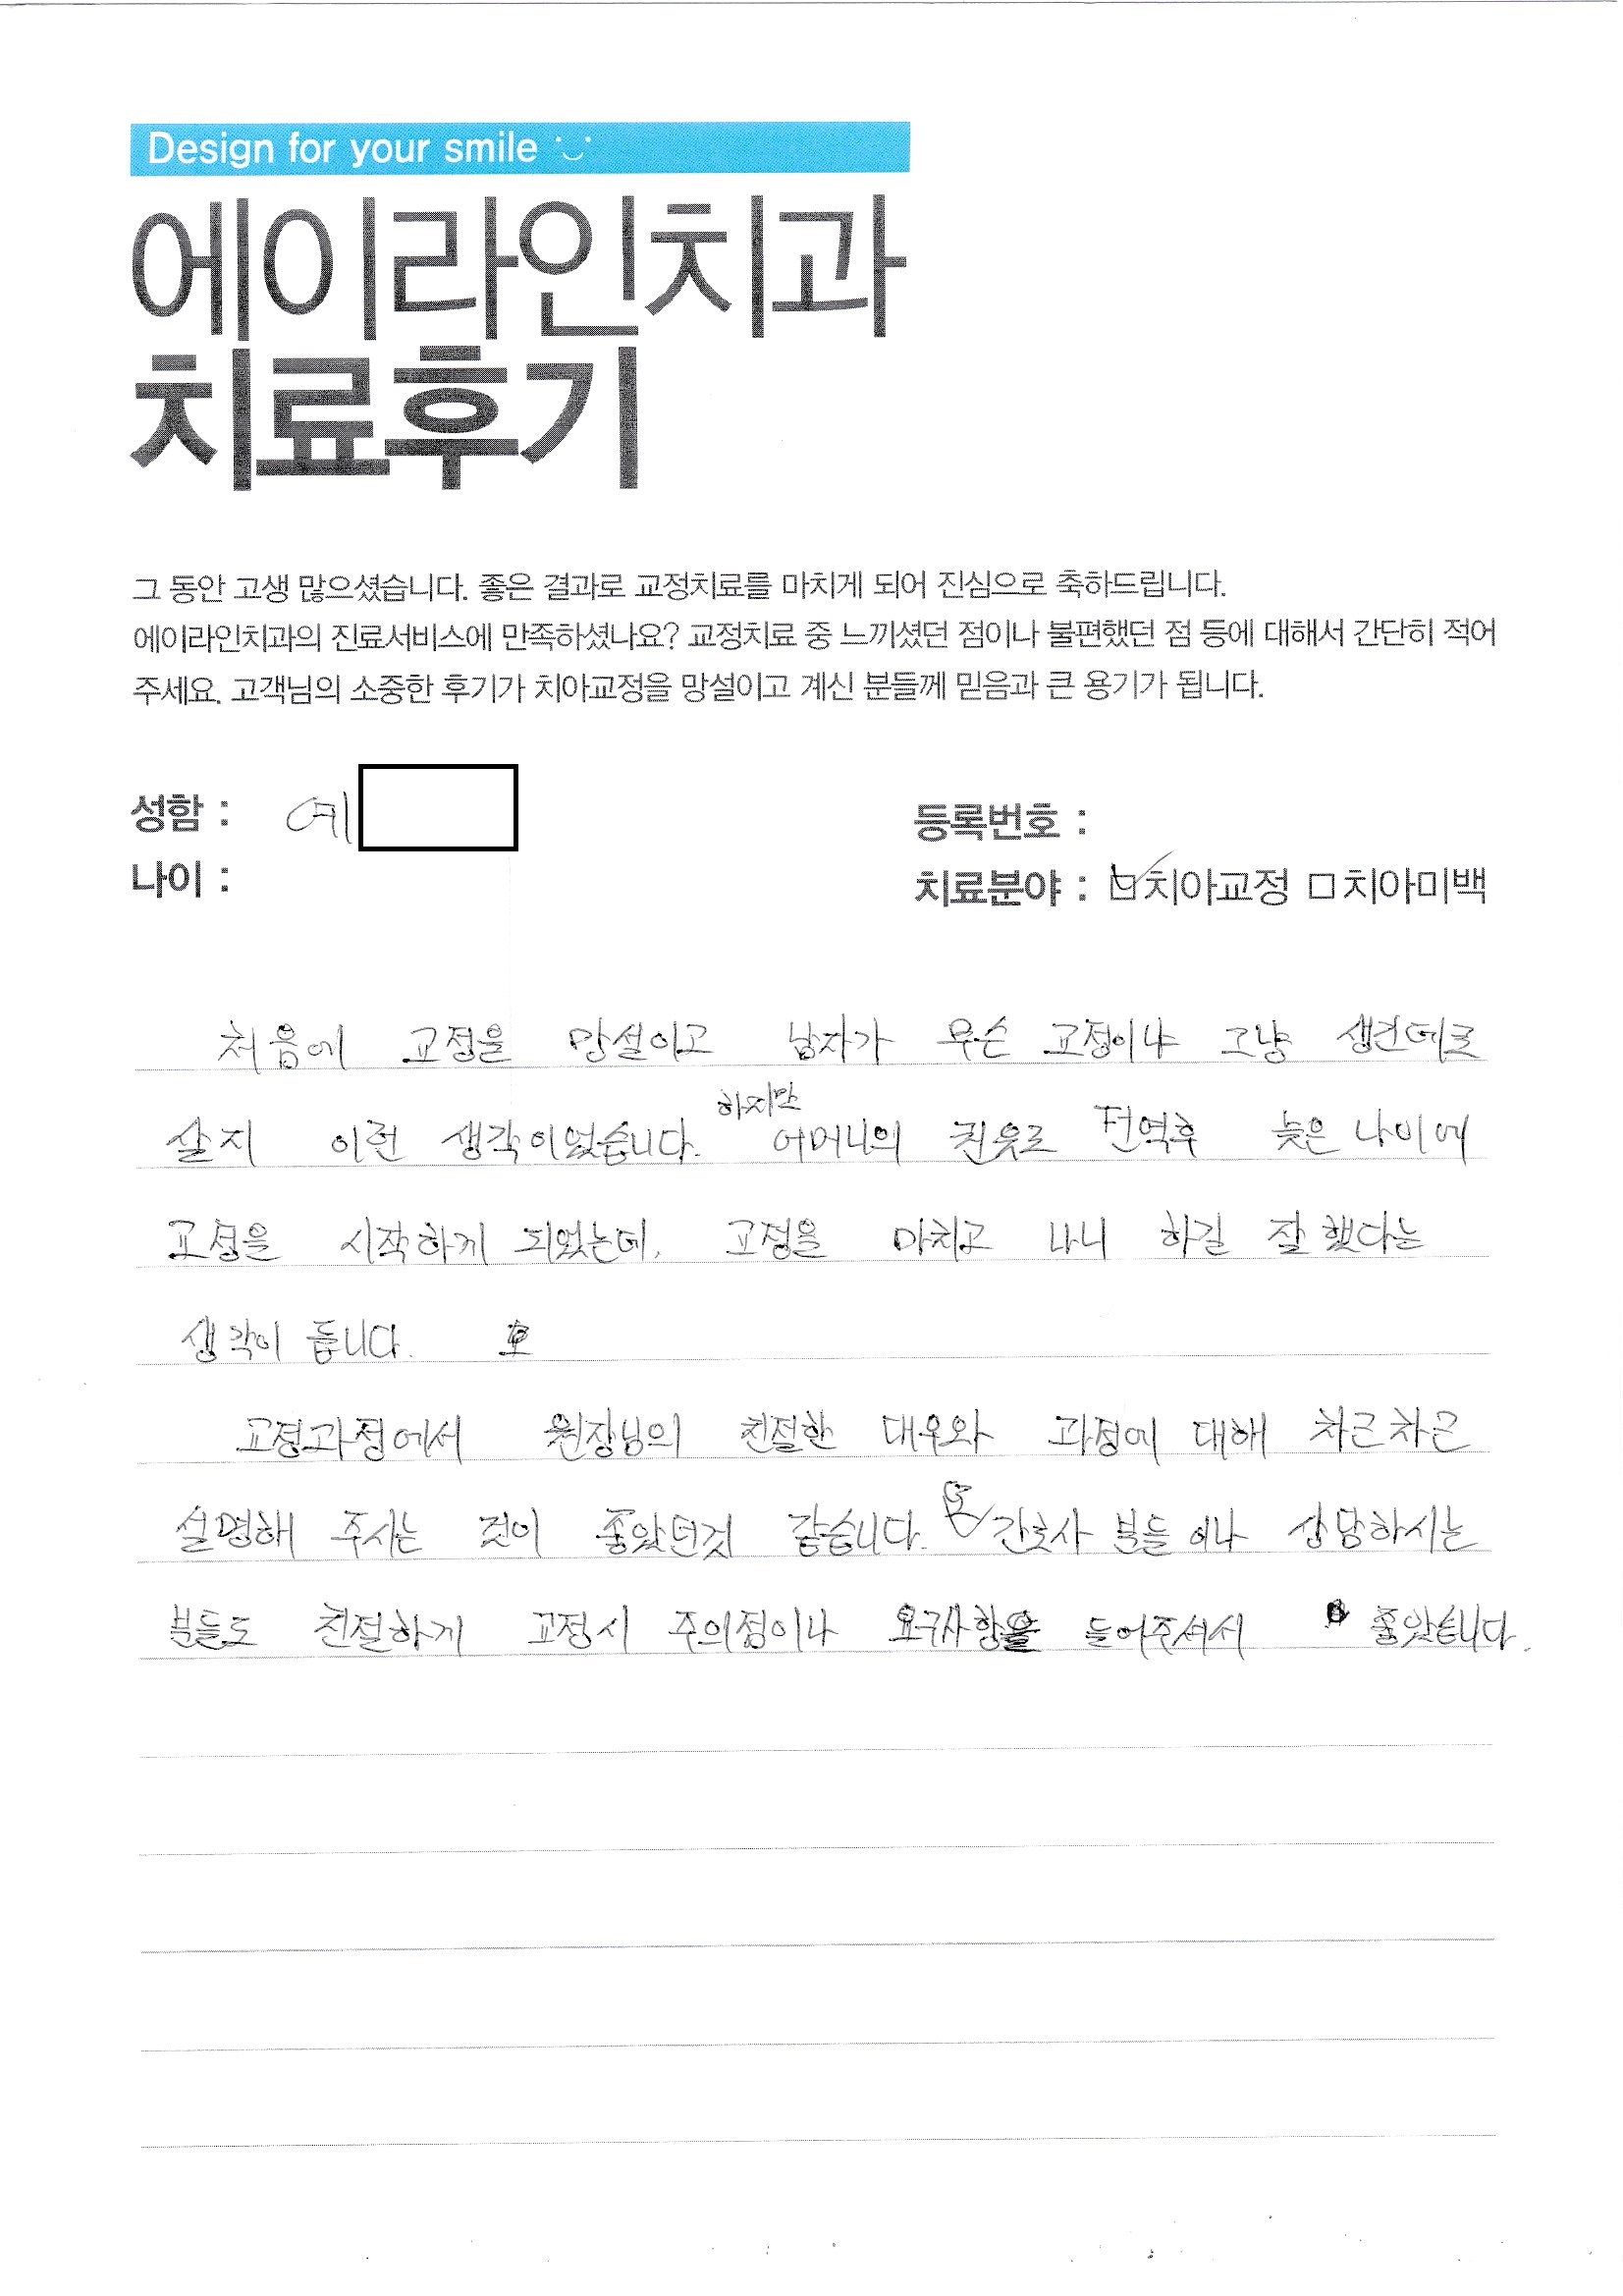 Design for your smile
에이라인치과
치료후기
그 동안 고생 많으셨습니다. 좋은 결과로 교정치료를 마치게 되어 진심으로 축하드립니다.
에이라인치과의 진료서비스에 만족하셨나요? 교정치료 중 느끼셨던 점이나 불편했던 점 등에 대해서 간단히 적어
주세요. 고객님의 소중한 후기가 치아교정을 망설이고 계신 분들께 믿음과 큰 용기가 됩니다.
성함 : 예
등록번호 :
나이 :
치료분야 : ☑치아교정 □치아미백
처음에 교정을 망설이고 남자가 무슨 교정이냐 그냥 생긴데로
살지 이런 생각이었습니다. 하지만 어머니의 권유로 전역후 늦은 나이에
교정을 시작하게 되었는데, 교정을 마치고 나니 하길 잘했다는
생각이 듭니다.
교정과정에서 원장님의 친절한 대우와 과정에 대해 차근차근
설명해 주시는 것이 좋았던것 같습니다. 또 간호사 분들이나 상담하시는
분들도 친절하게 교정시 주의점이나 요구사항을 들어주셔서 좋았습니다.